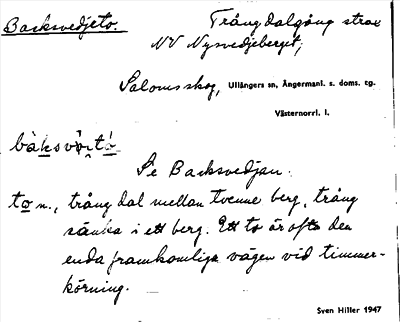 Backsvedjeto. Trång dalgång strax
NV Nysvedjeberget;
Salomsskog, Ullångers sn, Ångermanl. s. doms. tg.
Västernorrl. l.
Se Backsvedjan.
to n., trång dal mellan tvenne berg, trång
sänka i ett berg. Ett to är ofta den
enda framkomliga vägen vid timmer-
körning.
Sven Hiller 1947